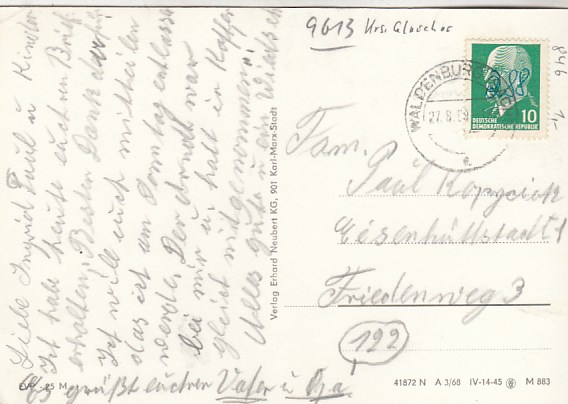 9613 Krs. Glauchau
846
1,-
WALDENBURG
27.8.69
DEUTSCHE
DEMOKRATISCHE REPUBLIK
10
Liebe Ingrid Paul u Kinder
Ich habe heute euchren Brief
erhalten, Besten Dank dafür
Ich will euch mitteilen
das ich am Donn,ag entlassen
werde, Der Arnold war
bei mir u, hatt im Koffer
gleich mitgenommen.
Alles gute u ein Wiedersehen
Es grüßt euchrer Vater u Opa
Fam.
Paul Kopzcick
Eisenhüttstadt 1
Friedenweg 3
122
Verlag Erhard Neubert KG, 901 Karl-Marx-Stadt
EVP -,25 M
41872 N A 3/68 IV-14-45 M 883